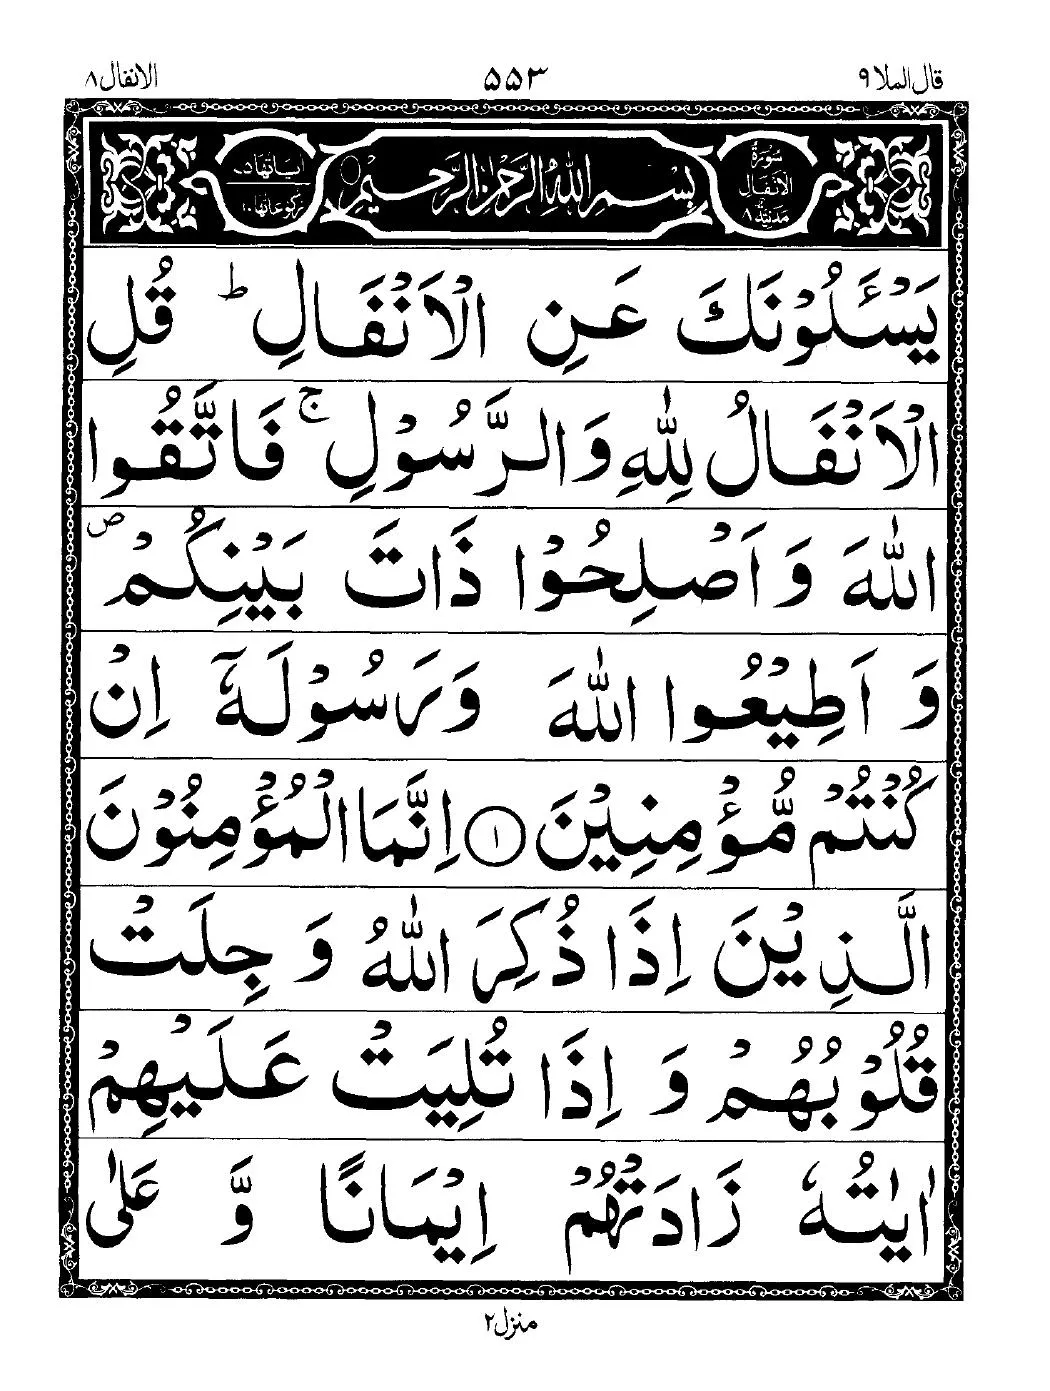 قال الملا ۹
۵۵۳
الانفال ۸
سورة الانفال مدنیة ۸
بِسْمِ اللهِ الرَّحْمٰنِ الرَّحِيْمِ
يَسْـَٔلُوْنَكَ عَنِ الْاَنْفَالِ ؕ قُلِ
الْاَنْفَالُ لِلّٰهِ وَالرَّسُوْلِ ۚ فَاتَّقُوا
اللّٰهَ وَاَصْلِحُوْا ذَاتَ بَيْنِكُمْ ۪
وَ اَطِيْعُوا اللّٰهَ وَرَسُوْلَهٗۤ اِنْ
كُنْتُمْ مُّؤْمِنِيْنَ ۱ اِنَّمَا الْمُؤْمِنُوْنَ
الَّذِيْنَ اِذَا ذُكِرَ اللّٰهُ وَجِلَتْ
قُلُوْبُهُمْ وَ اِذَا تُلِيَتْ عَلَيْهِمْ
اٰيٰتُهٗ زَادَتْهُمْ اِيْمَانًا وَّ عَلٰى
منزل ۲